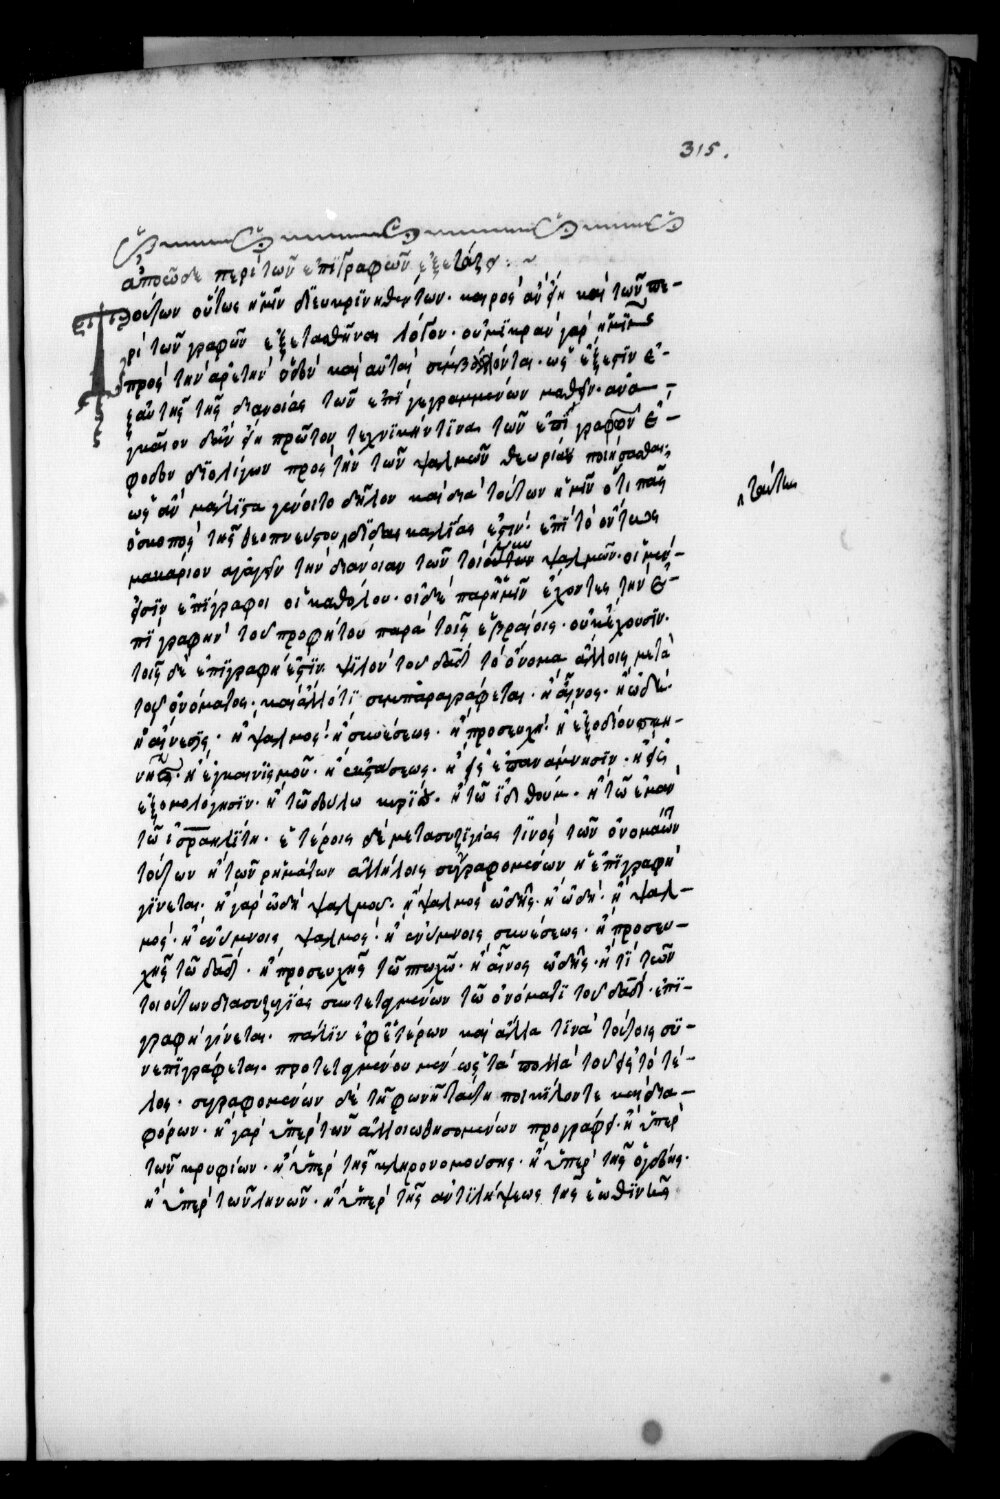 315.
ἀπὸ ὧδε περὶ τῶν ἐπιγραφῶν ἐξετάζει
Τούτων οὕτως ἡμῖν διευκρινηθέντων. καιρὸς ἂν εἴη καὶ τῶν πε-
ρὶ τῶν γραφῶν ἐξετασθῆναι λόγον. οὐ μικρὰν γὰρ ἡμῖν
πρὸς τὴν ἀρετὴν ὁδὸν καὶ αὗται συμβάλλονται. ὡς ἔξεστιν ἐ-
ξ αὐτῆς τῆς διανοίας τῶν ἐπιγεγραμμένων μαθεῖν. ἀνα-
γκαῖον δ' ἂν εἴη πρῶτον τεχνικήν τινα τῶν ἐπιγραφῶν ἔ-
φοδον δι' ὀλίγων πρὸς τὴν τῶν ψαλμῶν θεωρίαν ποιήσασθαι,
ὡς ἂν μάλιστα γένοιτο δῆλον καὶ διὰ τούτων ἡμῖν ὅτι πᾶς
ὁ σκοπὸς τῆς θεοπνεύστου διδασκαλίας ἐστὶν. ἐπὶ τὸ ὄντως
ταύτης
μακάριον ἀγαγεῖν τὴν διάνοιαν τῶν τοιούτων ψαλμῶν. οἱ μέν
εἰσιν ἐπίγραφοι οἱ καθόλου. οἱ δὲ παρ' ἡμῖν ἔχοντες τὴν ἐ-
πιγραφὴν τοῦ προφήτου παρὰ τοῖς ἑβραίοις. οὐκ ἔχουσιν.
τοῖς δὲ ἐπιγραφή ἐστιν ψιλὸν τοῦ δαδ τὸ ὄνομα ἄλλοις μετὰ
τοῦ ὀνόματος. καὶ ἄλλό τι συμπαραγράφεται. ἢ αἶνος. ἢ ὠδὴ.
ἢ αἴνεσις. ἢ ψαλμὸς. ἢ συνέσεως. ἢ προσευχὴ. ἢ ἐξοδίου σκη-
νῆς. ἢ ἐγκαινισμοῦ. ἢ ἐκστάσεως. ἢ εἰς ἐπανάμνησιν. ἢ εἰς
ἐξομολόγησιν. ἢ τῶ δούλω κυρίου. ἢ τῶ ἰδιθούμ. ἢ τῶ ἐμαν
τῶ ἰσραηλίτη. ἑτέροις δὲ μετὰ συζυγίας τινὸς τῶν ὀνομάτων
τούτων ἢ τῶν ῥημάτων ἀλλήλοις συγγραφομένων ἡ ἐπιγραφὴ
γίνεται. ἢ γὰρ ὠδὴ ψαλμοῦ. ἢ ψαλμὸς ὠδῆς. ἢ ὠδὴ. ἢ ψαλ-
μὸς. ἢ ἐν ὕμνοις ψαλμὸς. ἢ ἐν ὕμνοις συνέσεως. ἢ προσευ-
χῆς τῶ δαδ. ἢ προσευχῆς τῶ πτωχῶ. ἢ αἶνος ὠδῆς. ἤ τι τῶν
τοιούτων διὰ συζυγίας συντεταγμένων τῶ ὀνόματι τοῦ δαδ. ἐπι-
γραφὴ γίνεται. πάλιν ἐφ' ἑτέρων καὶ ἄλλα τινὰ τούτοις συ-
νεπιγράφεται. προτεταγμένου μὲν ὡς τὰ πολλὰ τοῦ εἰς τὸ τέ-
λος. συγγραφομένων δὲ τῆ φωνῆ ταύτη ποικίλων τε καὶ δια-
φόρων. ἢ γὰρ ὑπὲρ τῶν ἀλλοιωθησομένων προγράφει. ἢ ὑπὲρ
τῶν κρυφίων. ἢ ὑπὲρ τῆς κληρονομούσης. ἢ ὑπὲρ τῆς ὀγδόης.
ἢ ὑπὲρ τῶν ληνῶν. ἢ ὑπὲρ τῆς ἀντιλήψεως τῆς ἑωθινῆς